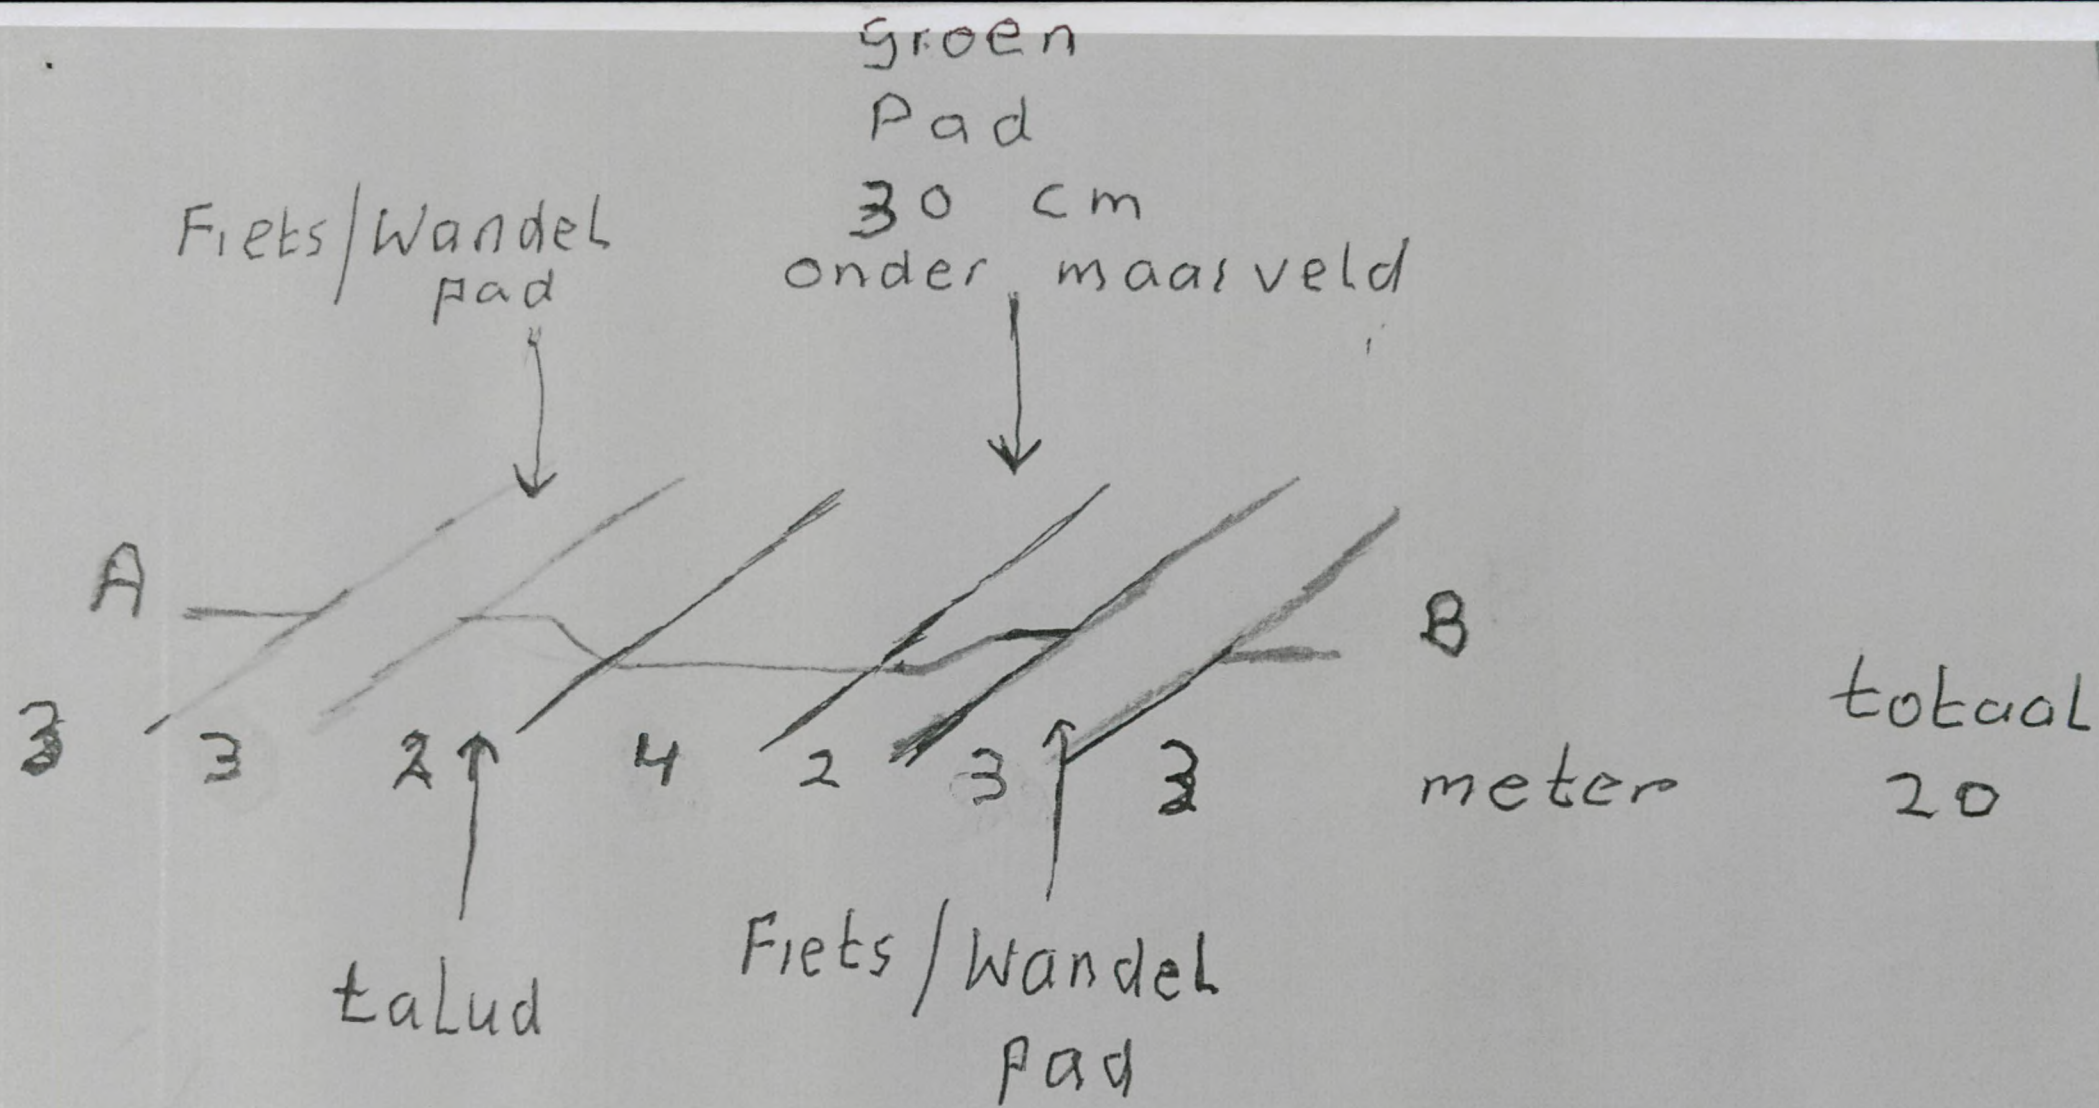 groen
Pad
30 cm
onder maaiveld
Fiets/Wandel
pad
A
B
3 3 2 4 2 3 3 meter
totaal
20
talud
Fiets/Wandel
pad